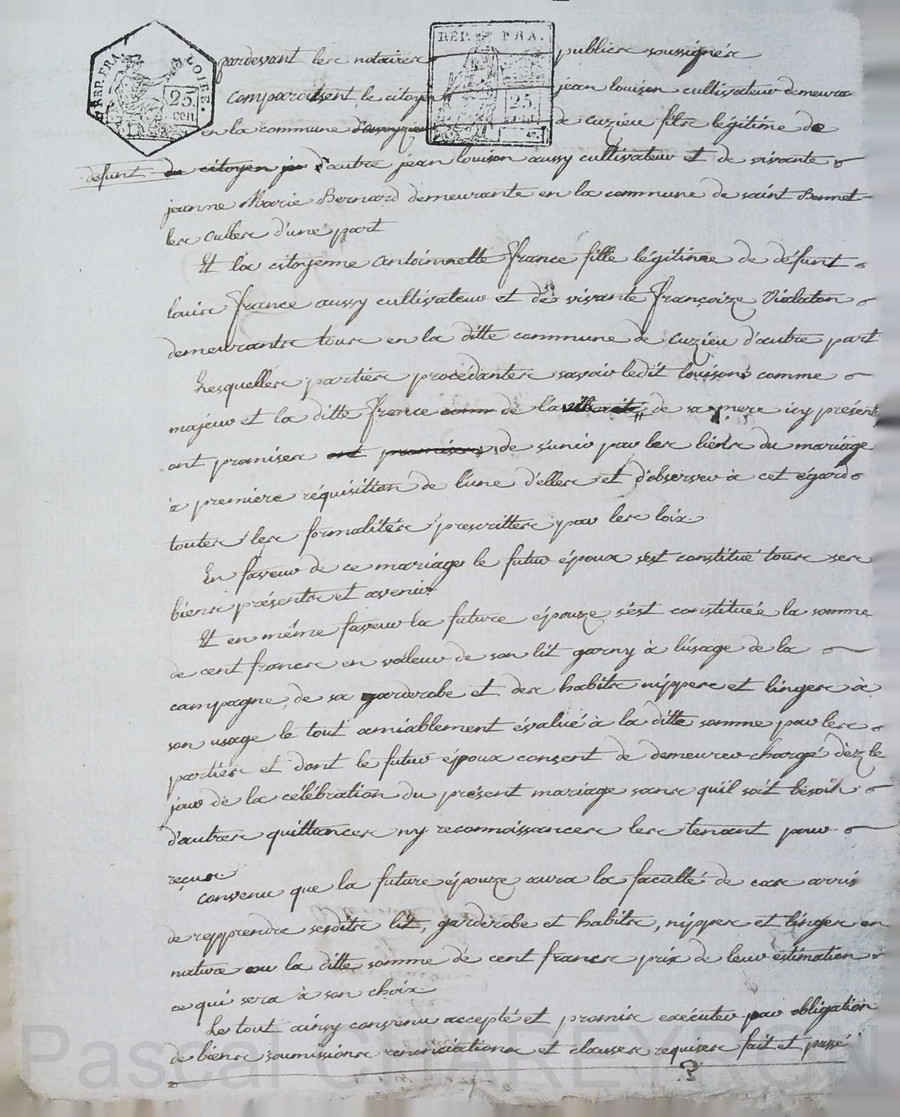 REP. FRA. LOIRE. 25 cen.
REP. FRA. 25
pardevant les notaires publics soussignés
comparoissent le citoyen jean louison cultivateur demeura
en la commune de cuzieu fils légitime de
defunt du citoyen je d'autre jean louison aussy cultivateur et de vivante
jeanne Marie Bernard demeurante en la commune de saint Bonnet
les Oulles d'une part
Et la citoyenne antoinnette france fille légitime de défunt
louis france aussy cultivateur et de vivante françoize Violaton
demeurants tous en la ditte commune de cuzieu d'autre part
Lesquelles parties procédantes savoir ledit louison comme
majeur et la ditte france comm de l'authorité de sa mere icy présente
ont promises ont promises de s'unir par les liens du mariage
à premiere réquisition de l'une d'elles et d'observer à cet égard
toutes les formalités prescrittes par les loix
En faveur de ce mariage le futur époux s'est constitué tous ses
biens présents et avenir
Et en même faveur la future épouze s'est constituée la somme
de cent francs en valeur de son lit garny à l'usage de la
campagne, de sa garderobe et des habits nippes et linges à
son usage le tout amiablement évalué à la ditte somme par les
parties et dont le futur époux consent de demeurer chargé dèz le
jour de la célébration du présent mariage sans qu'il soit besoin
d'autres quittances ny reconnoissances les tenant pour
reçus
convenu que la future épouze aura la faculté de cas arrivé
de repprendre sesdits lit, garderobe et habits, nippes et linges en
nature ou la ditte somme de cent francs prix de leur estimation
ce qui sera à son choix
Le tout ainsy convenu accepté et promis exécuter par obligation
de biens soumissions renonciations et clauses requises fait et passé
Pascal CHAREYRON